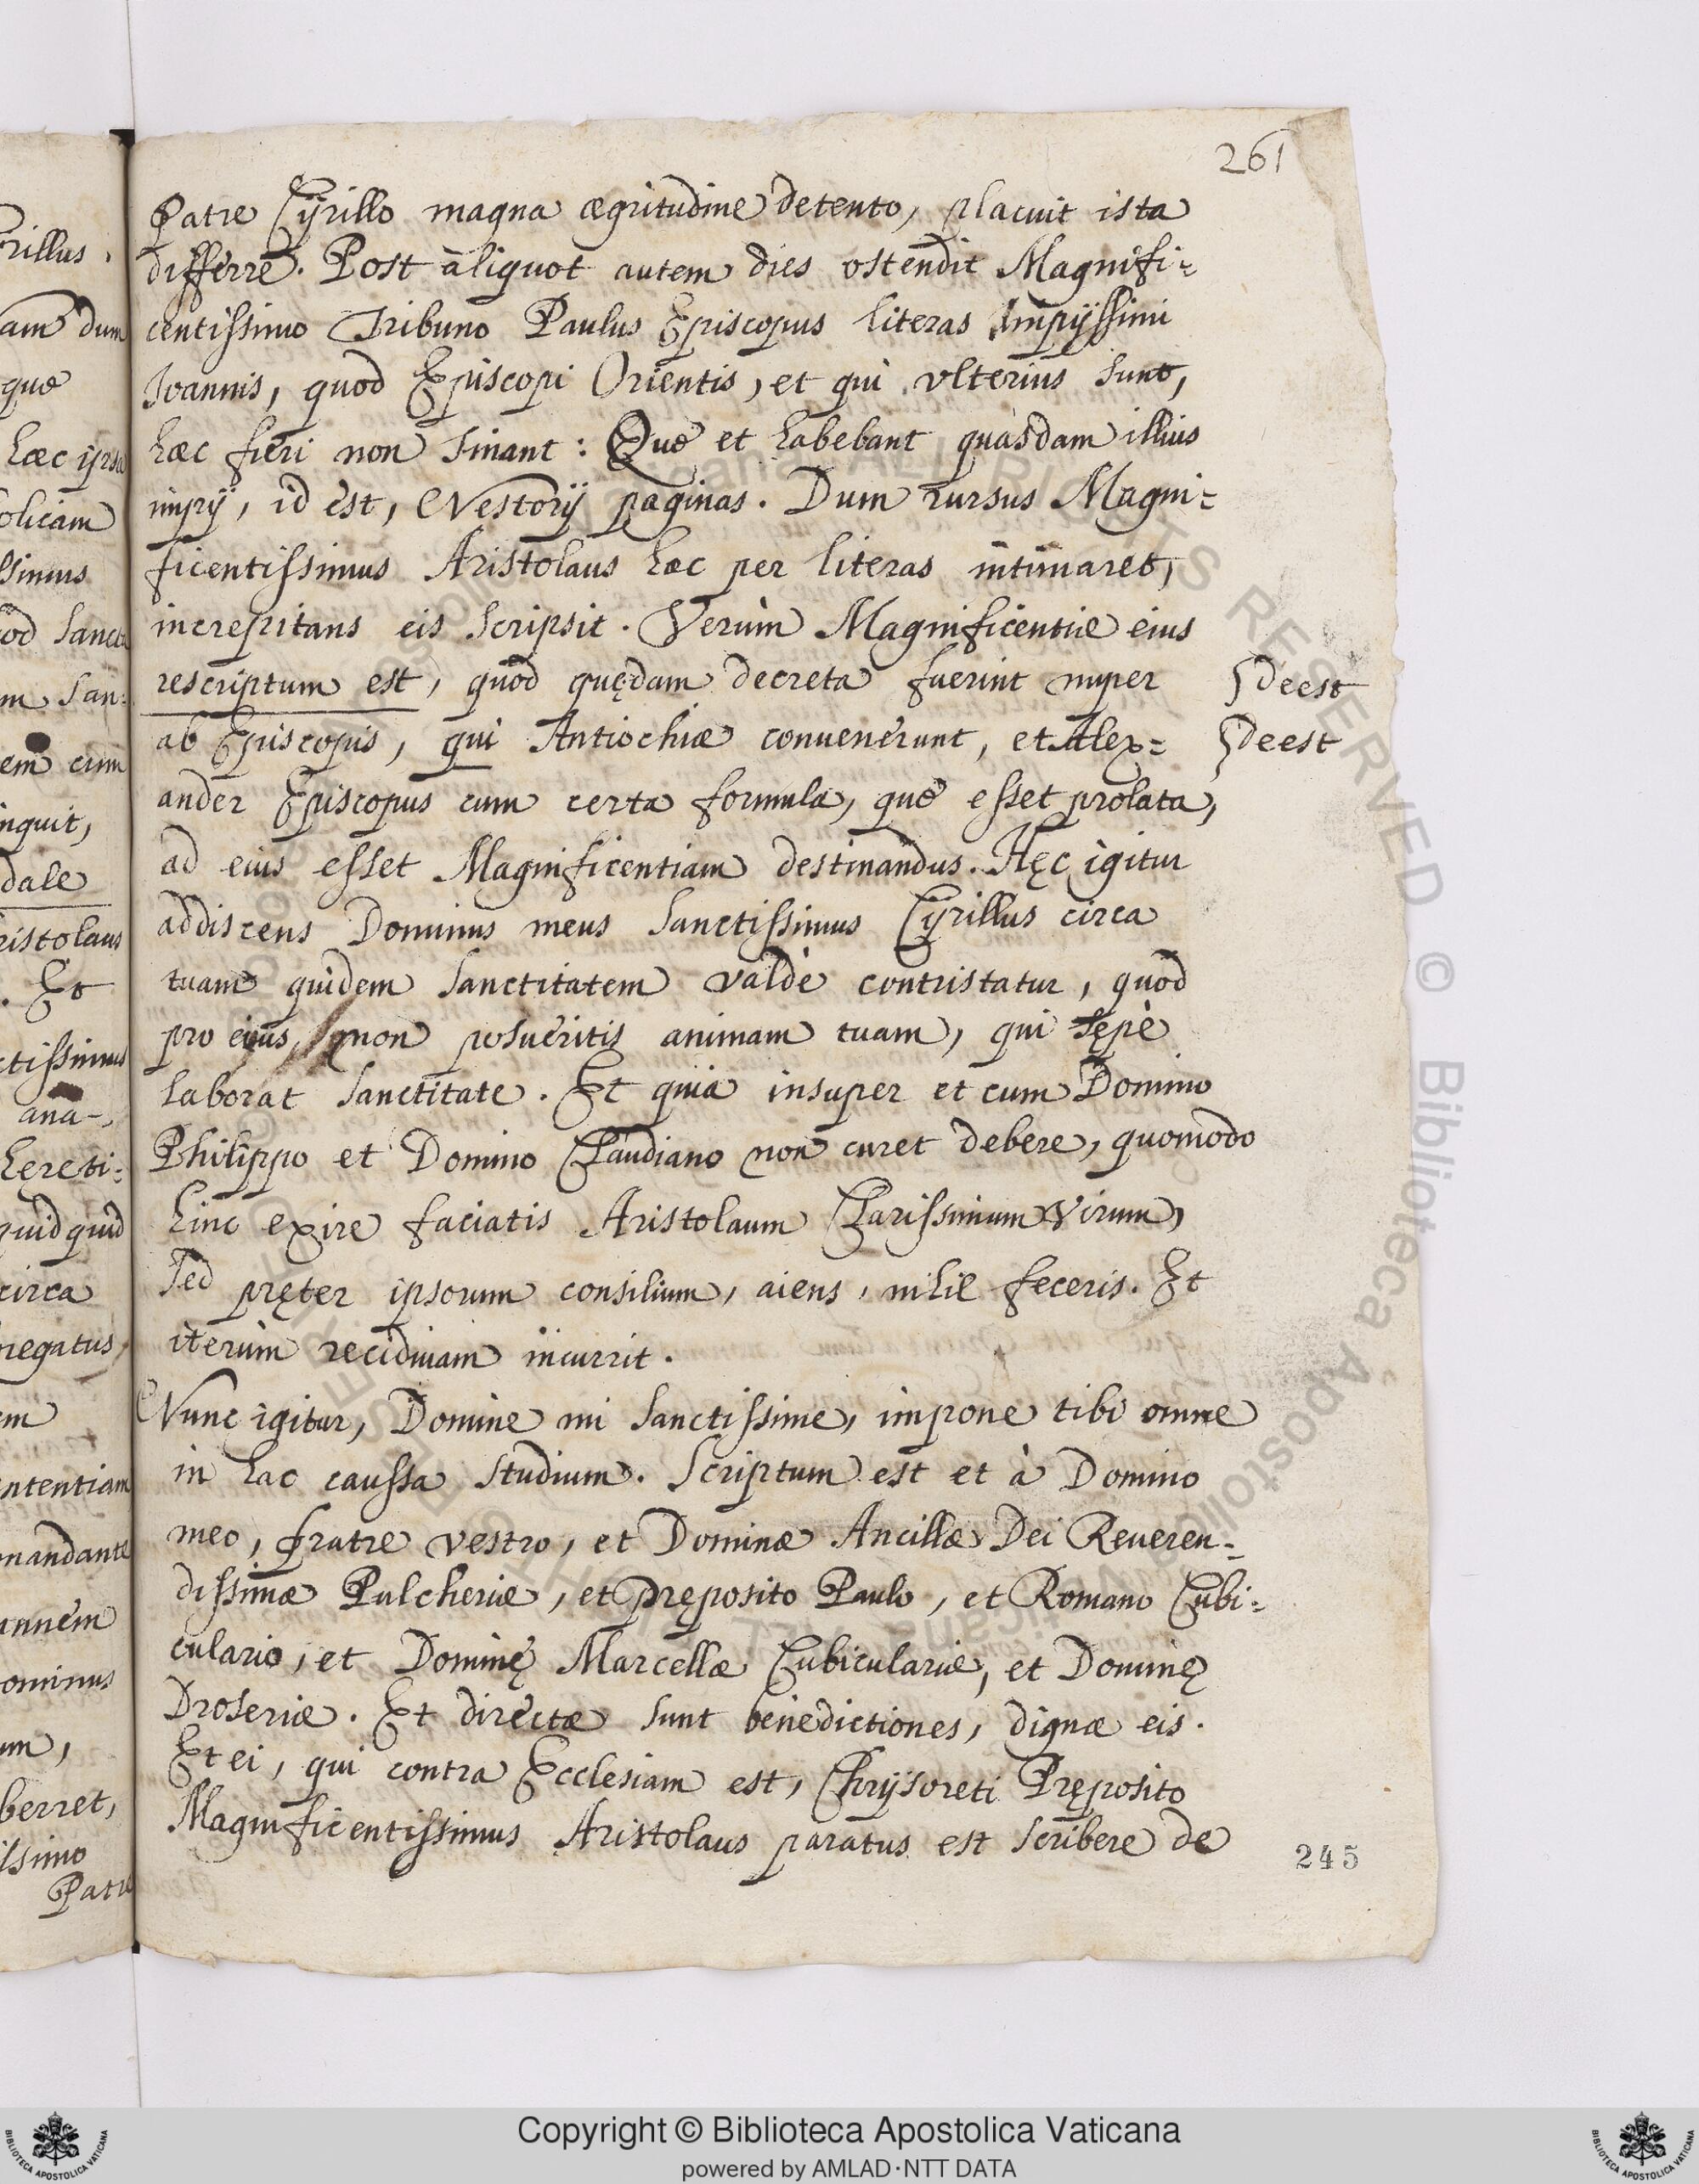 261
Patre Cyrillo magna ægritudine detento, placuit ista
differre. Post aliquot autem dies ostendit Magnifi=
centissimo Tribuno Paulus Episcopus literas Impijssimi
Ioannis, quod Episcopi Orientis, et qui vlterius sunt,
hæc fieri non sinant: Quæ et habebant quasdam illius
impij, id est, Nestorij paginas. Dum rursus Magni=
ficentissimus Aristolaus hæc per literas intimaret,
increpitans eis scripsit. Verùm Magnificentiæ eius
rescriptum est, quod quędam decreta fuerint nuper
ab Episcopis, qui Antiochiæ conuenerunt, et Alex=
ander Episcopus cum certa formula, quæ esset prolata,
ad eius esset Magnificentiam destinandus. Hęc igitur
addiscens Dominus meus Sanctissimus Cyrillus circa
tuam quidem Sanctitatem valdè contristatur, quod
pro eius non posueritis animam tuam, qui sępè
laborat Sanctitate. Et quia insuper et cum Domino
Philippo et Domino Claudiano non curet debere, quomodo
hinc exire faciatis Aristolaum Clarissimum Virum,
Sed pręter ipsorum consilium, aiens, nihil feceris. Et
iterùm recidiuam incurrit.
Nunc igitur, Domine mi Sanctissime, impone tibi omne
in hac caussa studium. Scriptum est et à Domino
meo, fratre vestro, et Dominæ Ancillæ Dei Reueren=
dissimæ Pulcheriæ, et Pręposito Paulo, et Romano Cubi=
culario, et Dominę Marcellæ Cubiculariæ, et Dominę
Droseriæ. Et directæ sunt benedictiones, dignæ eis.
Et ei, qui contra Ecclesiam est, Chrysoreti Pręposito
Magnificentissimus Aristolaus paratus est scribere de
deest
deest
245
rillus,
am dum
quæ
hæc ipsa
olicam
ssimus
od Sancta
m San=
em cum
inquit,
dale
ristolaus
. Et
ctissimus
ana-
hęreti=
quidquid
circa
negatus,
em
ntentiam
mandante
ominus
um,
berret,
issimo
Patre
Copyright © Biblioteca Apostolica Vaticana
powered by AMLAD·NTT DATA
BIBLIOTECA APOSTOLICA VATICANA
BIBLIOTECA APOSTOLICA VATICANA